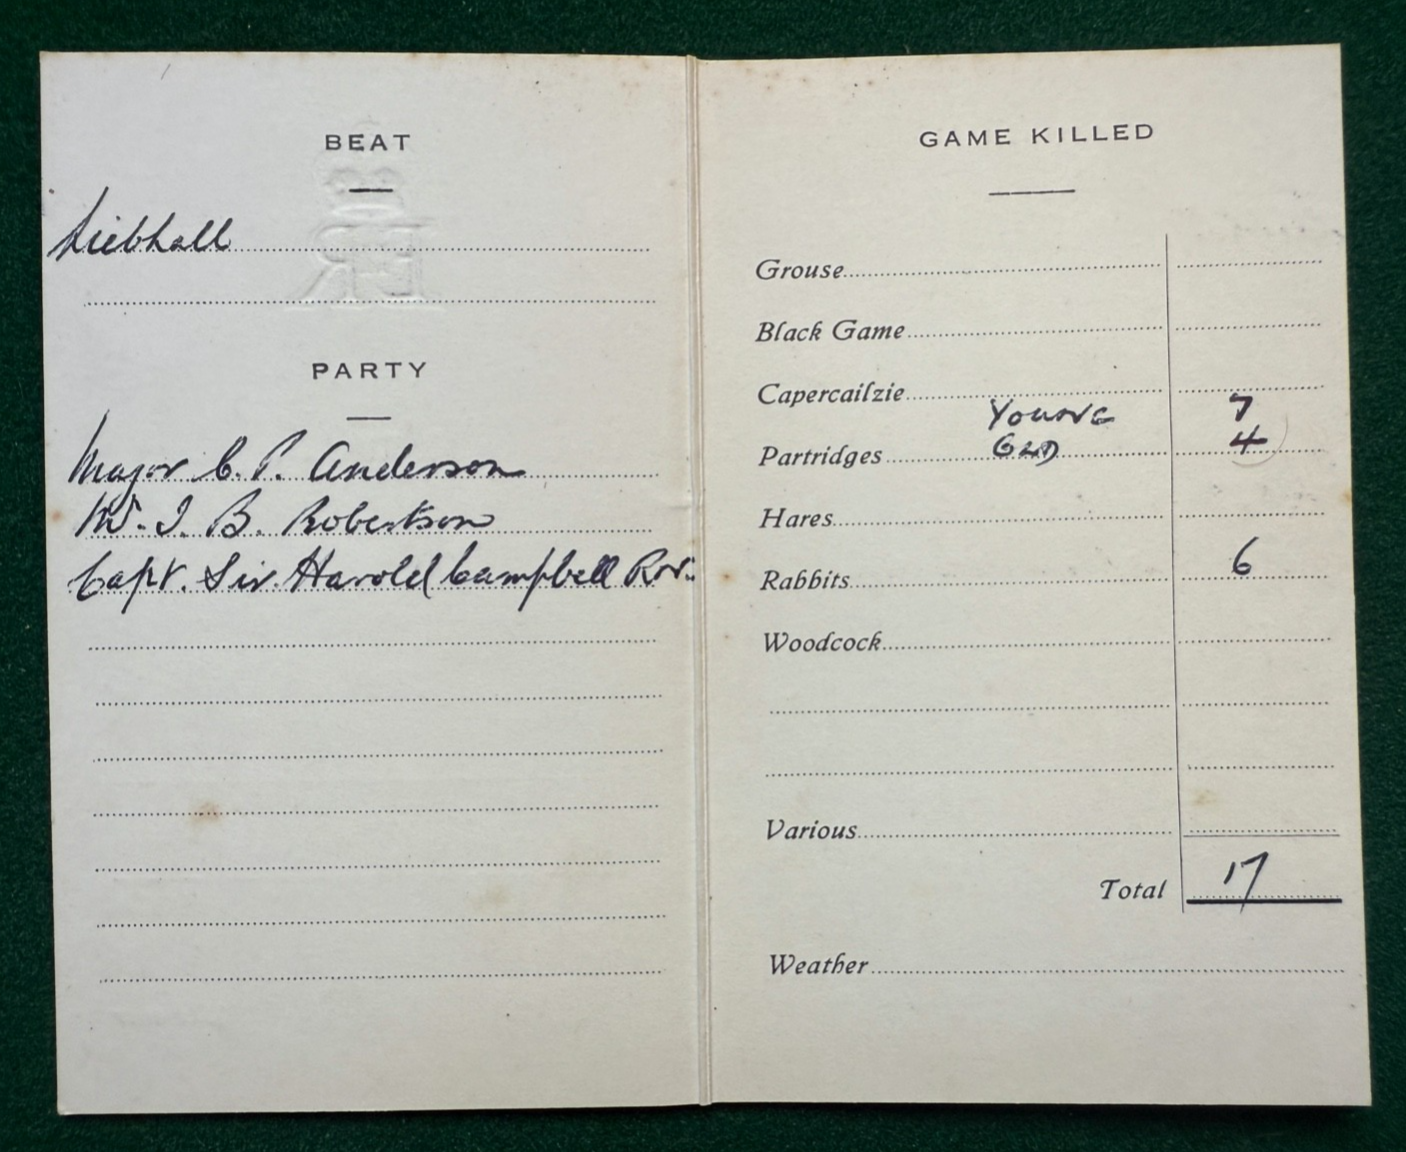 BEAT
PARTY
Major C. P. Anderson
Mr. J. B. Robertson
Capt. Sir. Harold Campbell R.N.
GAME KILLED
Grouse
Black Game
Capercailzie
YOUNG 7
Partridges OLD 4
Hares
Rabbits 6
Woodcock
Various
Total 17
Weather